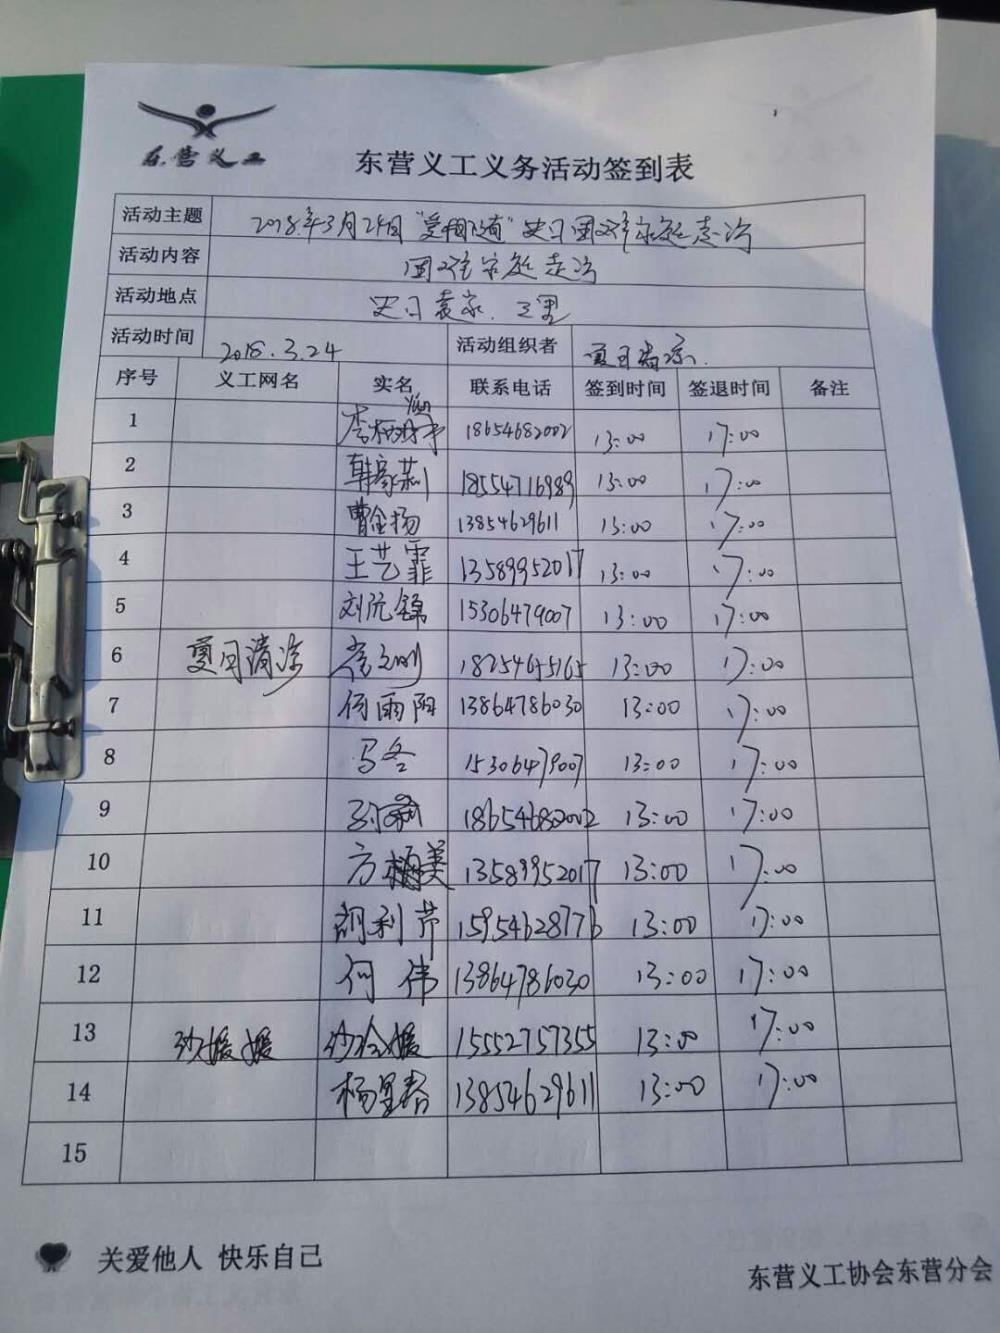 东营义工
东营义工义务活动签到表
活动主题 2018年3月24日"爱相随"史口困难家庭走访
活动内容 困难家庭走访
活动地点 史口袁家、三里
活动时间 2018.3.24 活动组织者 夏日清凉
序号 义工网名 实名 联系电话 签到时间 签退时间 备注
1 18654682002 13:00 17:00
2 韩家莉 18554716989 13:00 17:00
3 曹金扬 13854629611 13:00 17:00
4 王艺霏 13589952017 13:00 17:00
5 刘沅锦 15306479007 13:00 17:00
6 夏日清凉 18254645165 13:00 17:00
7 何雨阳 13864786030 13:00 17:00
8 马冬 15306479007 13:00 17:00
9 18654682002 13:00 17:00
10 方梅美 13589952017 13:00 17:00
11 胡利芹 15954628776 13:00 17:00
12 何伟 13864786030 13:00 17:00
13 15552757355 13:00 17:00
14 杨星春 13854629611 13:00 17:00
15
关爱他人 快乐自己
东营义工协会东营分会